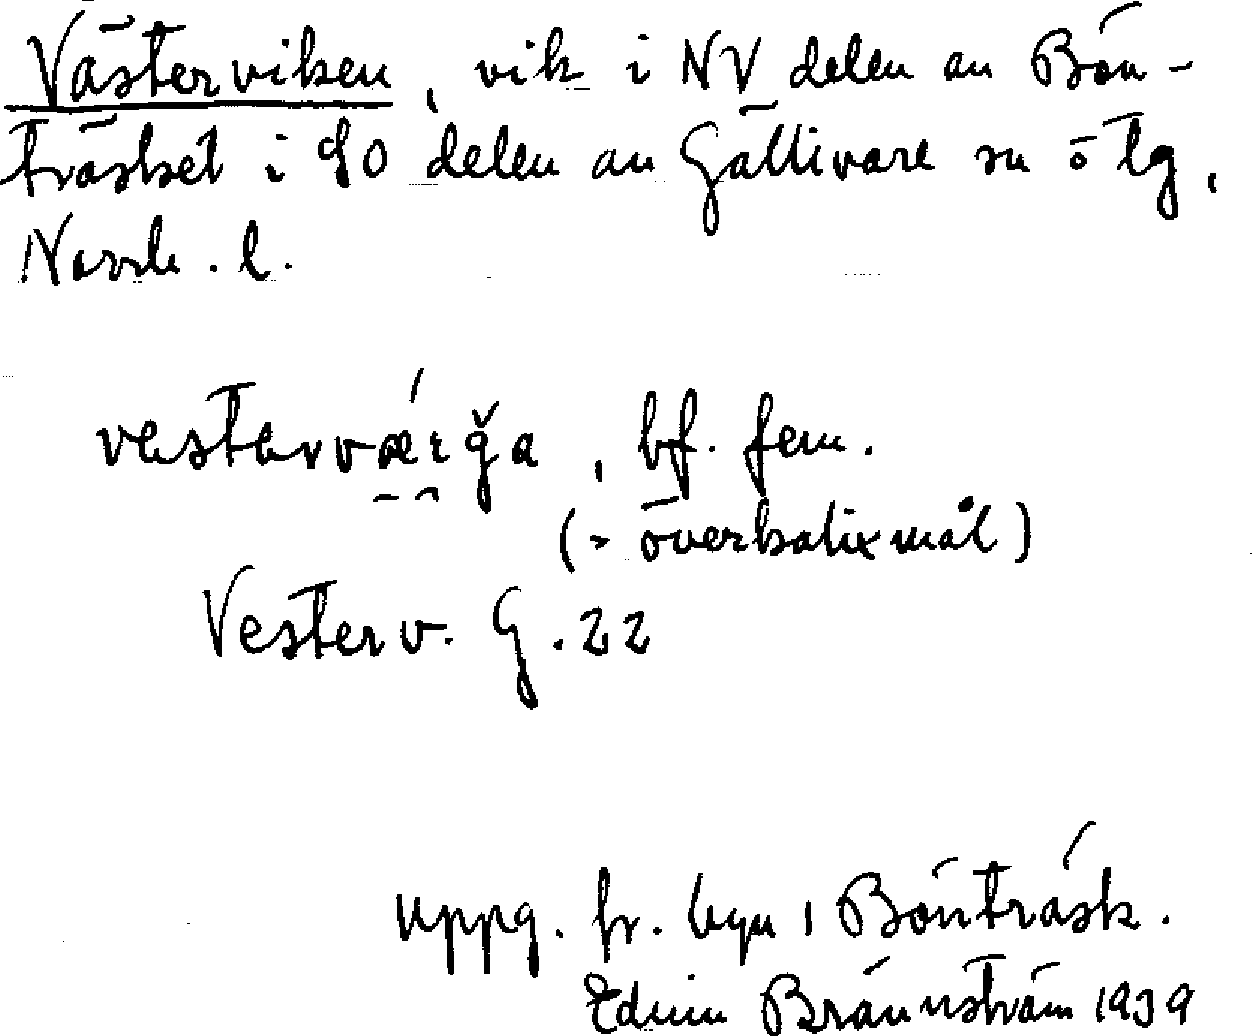 Västerviken, vik i NV delen av Bön-
träsket i SO delen av Gällivare sn o tg,
Norrb. l.
vestervǽrğa, bf. fem.
(= överkalixmål)
Vesterv. G. 22
uppg. fr. byn i Bönträsk.
Edvin Brännström 1939